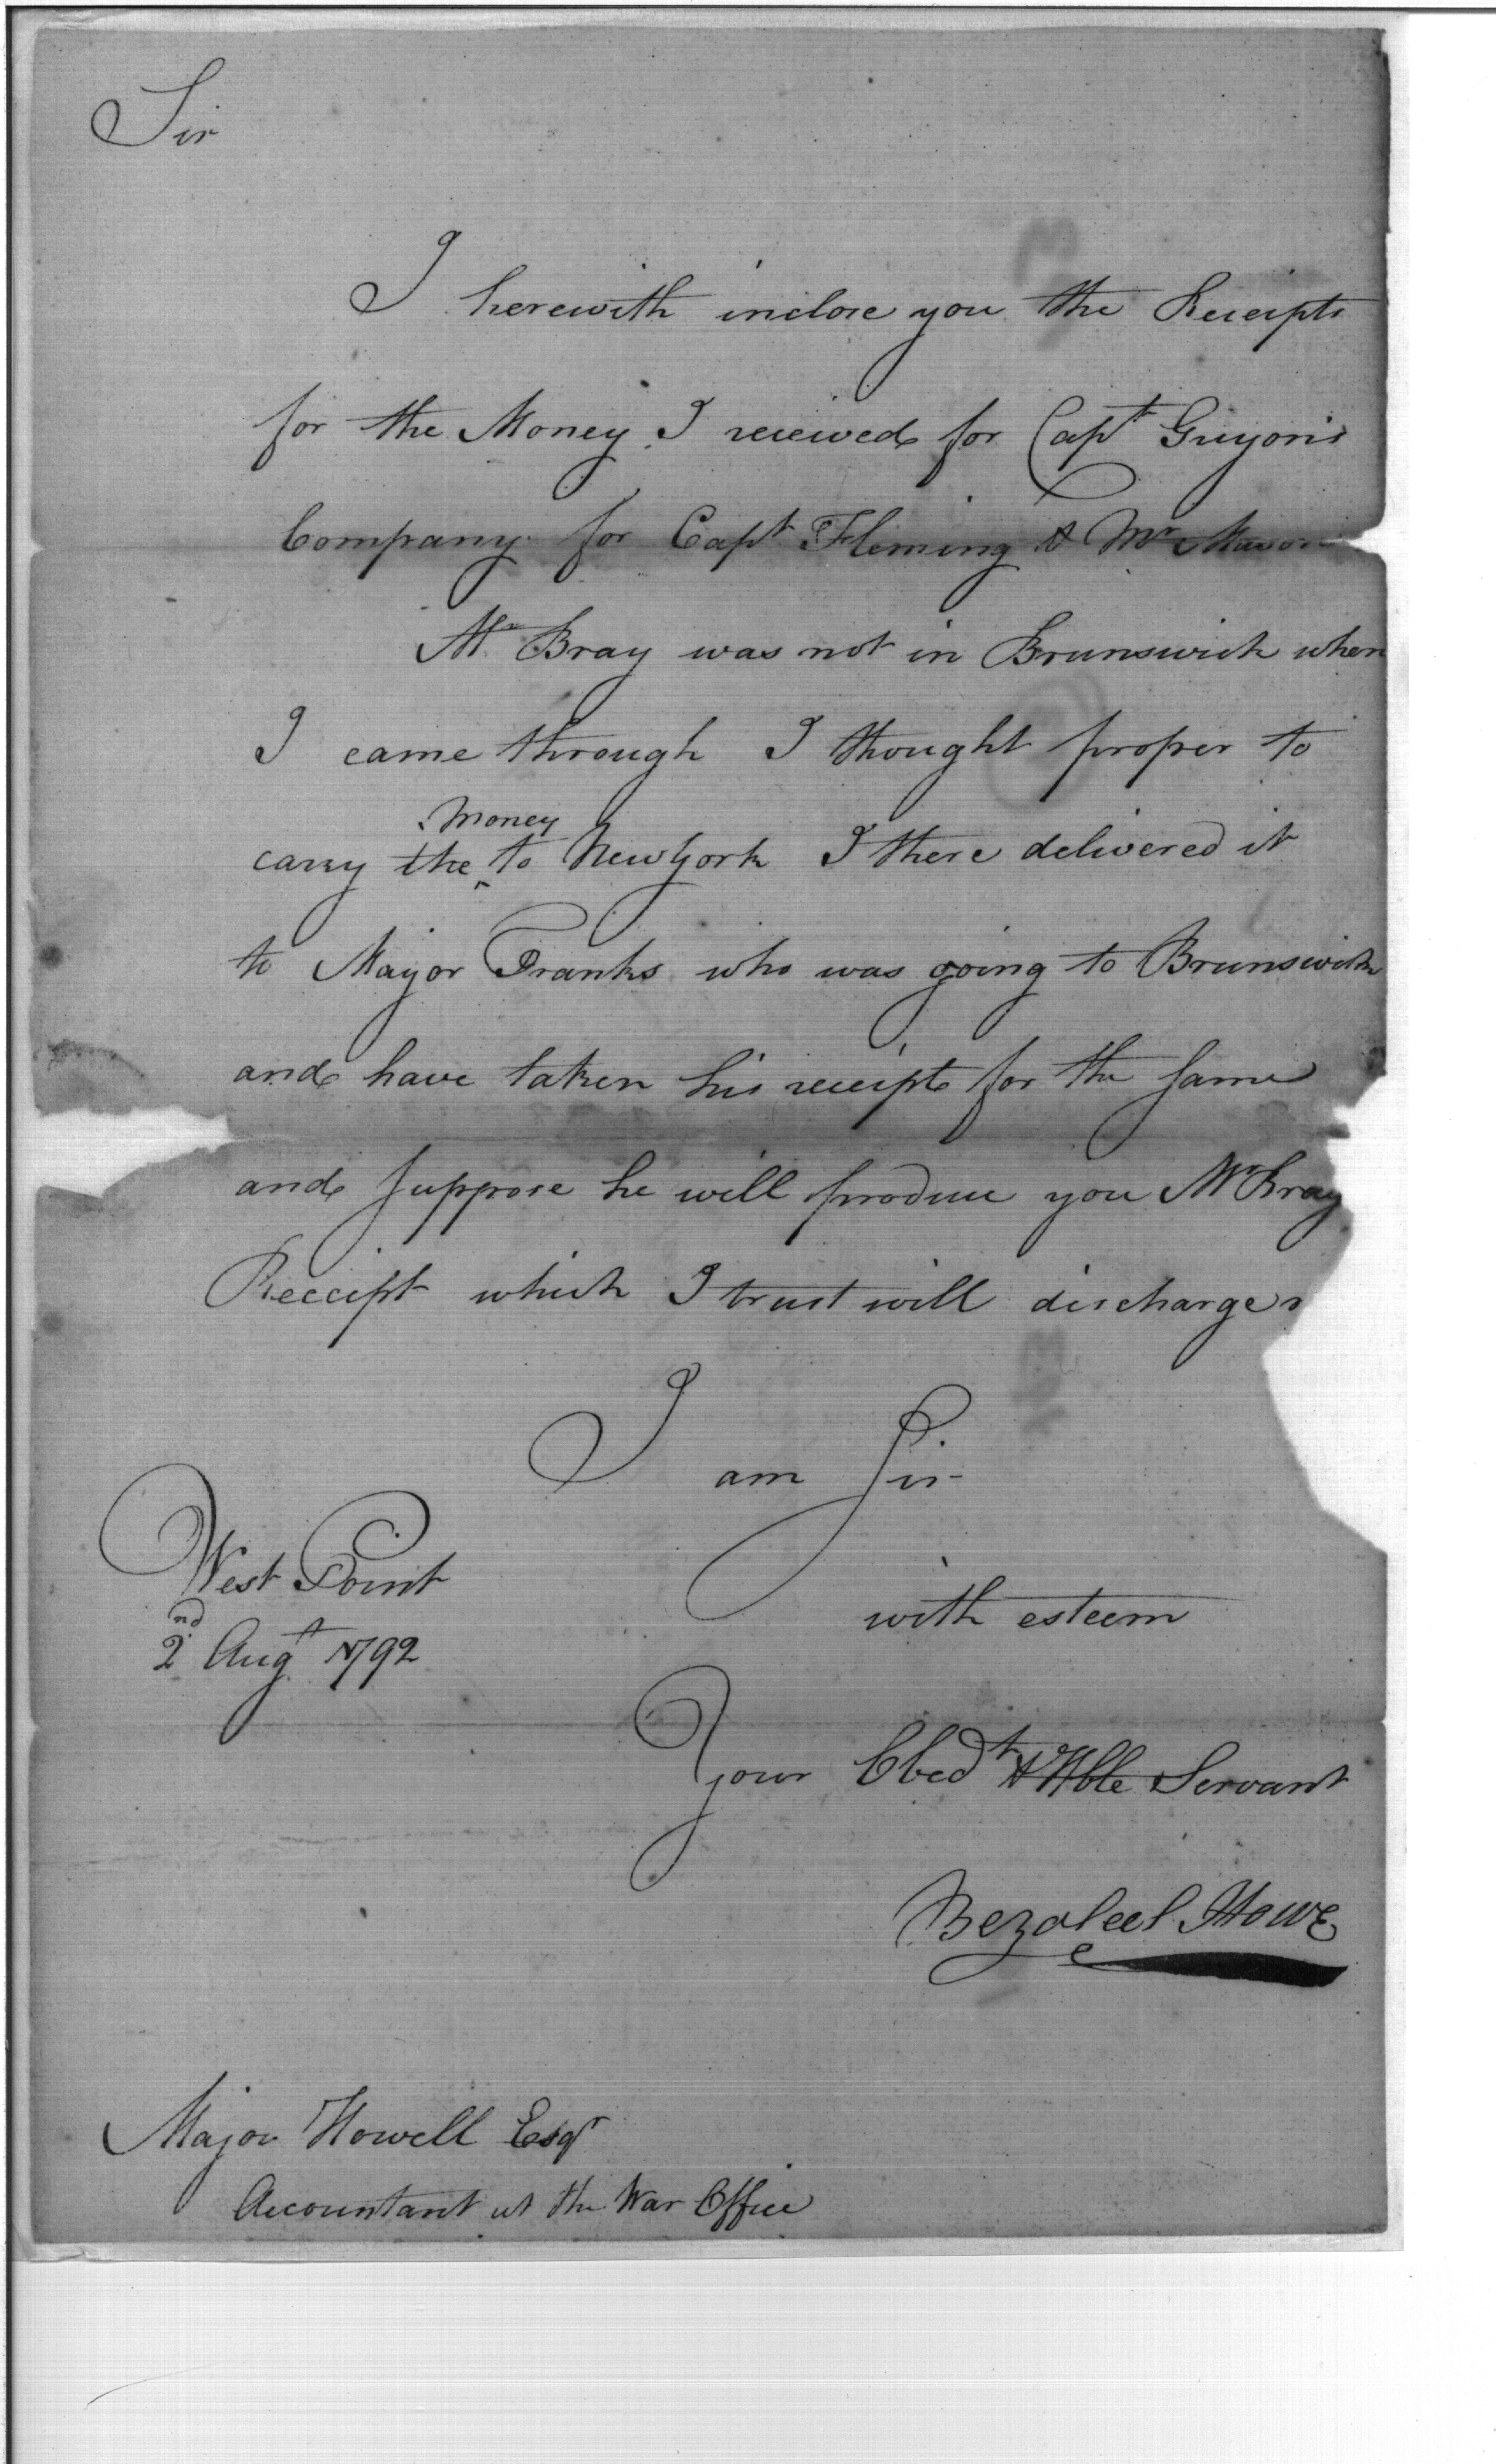 Sir
I herewith inclose you the Receipts
for the Money I received for Capt Guyon's
Company for Capt Fleming & Mr
Mr Bray was not in Brunswick when
I came through I thought proper to
money
carry the ‸ to NewYork I there delivered it
to Major Franks who was going to Brunswick
and have taken his receipt for the same
and suppose he will produce you Mr Bray
Receipt which I trust will discharge
I am Sir
West Point
with esteem
2nd Augt 1792
Your Obedt & Hble Servant
Bezaleel Howe
Major Howell Esqr
Accountant at the War Office